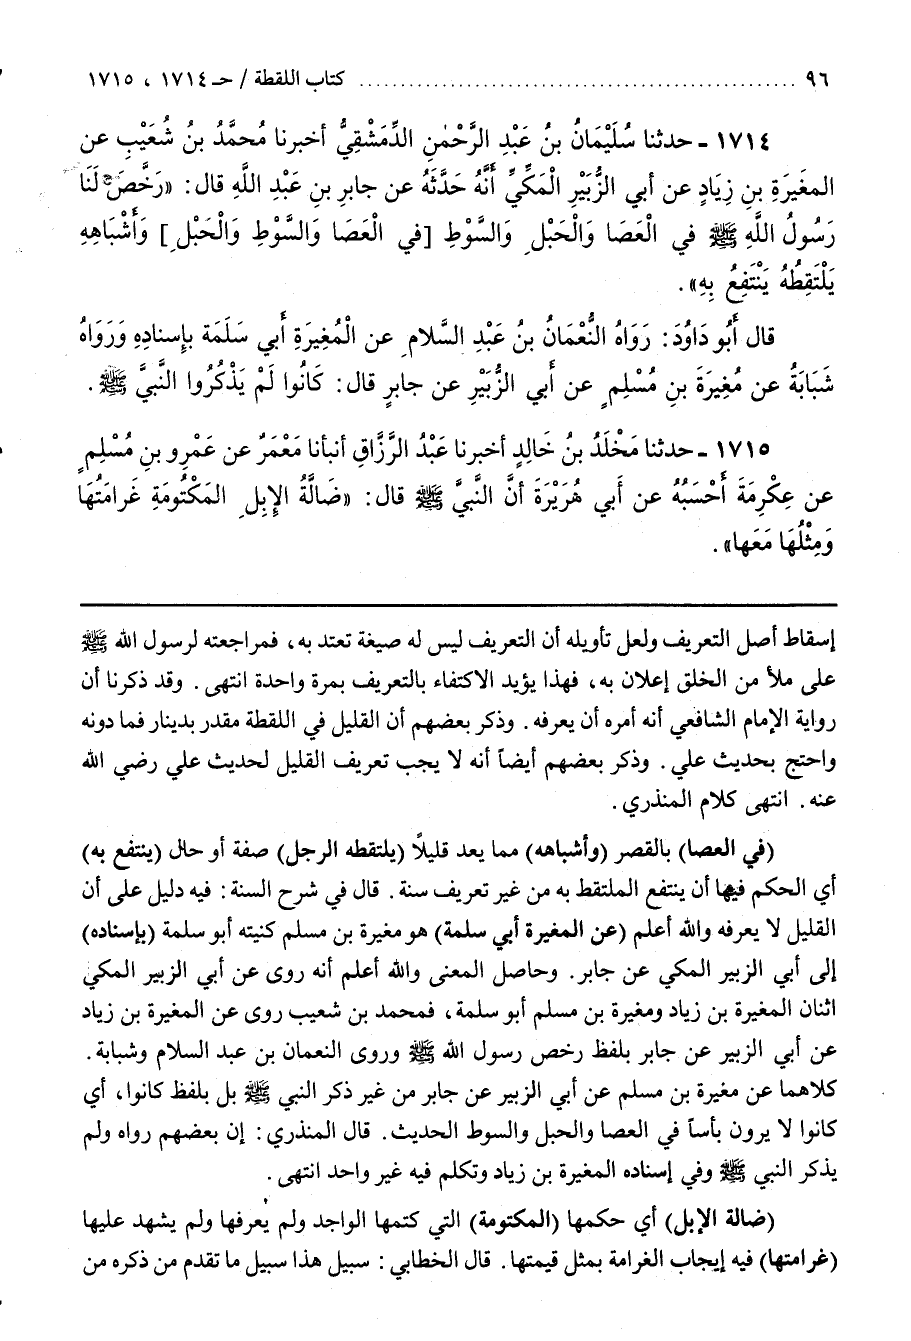 ٩٦ ........................................ كتاب اللقطة / حـ ١٧١٤ ، ١٧١٥
١٧١٤ ـ حدثنا سُلَيْمَانُ بنُ عَبْدِ الرَّحْمٰنِ الدِّمَشْقِيُّ أخبرنا مُحمَّدُ بنُ شُعَيْبٍ عن
المغِيرَةِ بنِ زِيَادٍ عن أبي الزُّبَيْرِ الْمَكِّيِّ أنَّهُ حَدَّثَهُ عن جابرِ بنِ عَبْدِ اللَّهِ قال: «رَخَّصَ لَنَا
رَسُولُ اللَّهِ ﷺ في الْعَصَا وَالْحَبْلِ وَالسَّوْطِ [في الْعَصَا وَالسَّوْطِ وَالْحَبْلِ] وَأَشْبَاهِهِ
يَلْتَقِطُهُ يَنْتَفِعُ بِهِ».
قال أَبُو دَاوُدَ: رَوَاهُ النُّعْمَانُ بنُ عَبْدِ السَّلامِ عن الْمُغِيرَةِ أَبي سَلَمَةَ بإِسنادِهِ وَرَوَاهُ
شَبَابَةُ عن مُغِيرَةَ بنِ مُسْلِمٍ عن أبي الزُّبَيْرِ عن جابرٍ قال: كَانُوا لَمْ يَذْكُرُوا النَّبيَّ ﷺ.
١٧١٥ ـ حدثنا مَخْلَدُ بنُ خَالِدٍ أخبرنا عَبْدُ الرَّزَّاقِ أنبأنا مَعْمَرٌ عن عَمْرِو بنِ مُسْلِمٍ
عن عِكْرِمَةَ أَحْسَبُهُ عن أَبي هُرَيْرَةَ أنَّ النَّبيَّ ﷺ قال: «ضَالَّةُ الإِبلِ المَكْتُومَةِ غَرامَتُهَا
وَمِثْلُهَا مَعَها».
إسقاط أصل التعريف ولعل تأويله أن التعريف ليس له صيغة تعتد به، فمراجعته لرسول الله ﷺ
على ملأ من الخلق إعلان به، فهذا يؤيد الاكتفاء بالتعريف بمرة واحدة انتهى. وقد ذكرنا أن
رواية الإمام الشافعي أنه أمره أن يعرفه. وذكر بعضهم أن القليل في اللقطة مقدر بدينار فما دونه
واحتج بحديث علي. وذكر بعضهم أيضاً أنه لا يجب تعريف القليل لحديث علي رضي الله
عنه. انتهى كلام المنذري.
(في العصا) بالقصر (وأشباهه) مما يعد قليلاً (يلتقطه الرجل) صفة أو حال (ينتفع به)
أي الحكم فيها أن ينتفع الملتقط به من غير تعريف سنة. قال في شرح السنة: فيه دليل على أن
القليل لا يعرفه والله أعلم (عن المغيرة أبي سلمة) هو مغيرة بن مسلم كنيته أبو سلمة (بإسناده)
إلى أبي الزبير المكي عن جابر. وحاصل المعنى والله أعلم أنه روى عن أبي الزبير المكي
اثنان المغيرة بن زياد ومغيرة بن مسلم أبو سلمة، فمحمد بن شعيب روى عن المغيرة بن زياد
عن أبي الزبير عن جابر بلفظ رخص رسول الله ﷺ وروى النعمان بن عبد السلام وشبابة.
كلاهما عن مغيرة بن مسلم عن أبي الزبير عن جابر من غير ذكر النبي ﷺ بل بلفظ كانوا، أي
كانوا لا يرون بأساً في العصا والحبل والسوط الحديث. قال المنذري: إن بعضهم رواه ولم
يذكر النبي ﷺ وفي إسناده المغيرة بن زياد وتكلم فيه غير واحد انتهى.
(ضالة الإبل) أي حكمها (المكتومة) التي كتمها الواجد ولم يعرفها ولم يشهد عليها
(غرامتها) فيه إيجاب الغرامة بمثل قيمتها. قال الخطابي: سبيل هذا سبيل ما تقدم من ذكره من